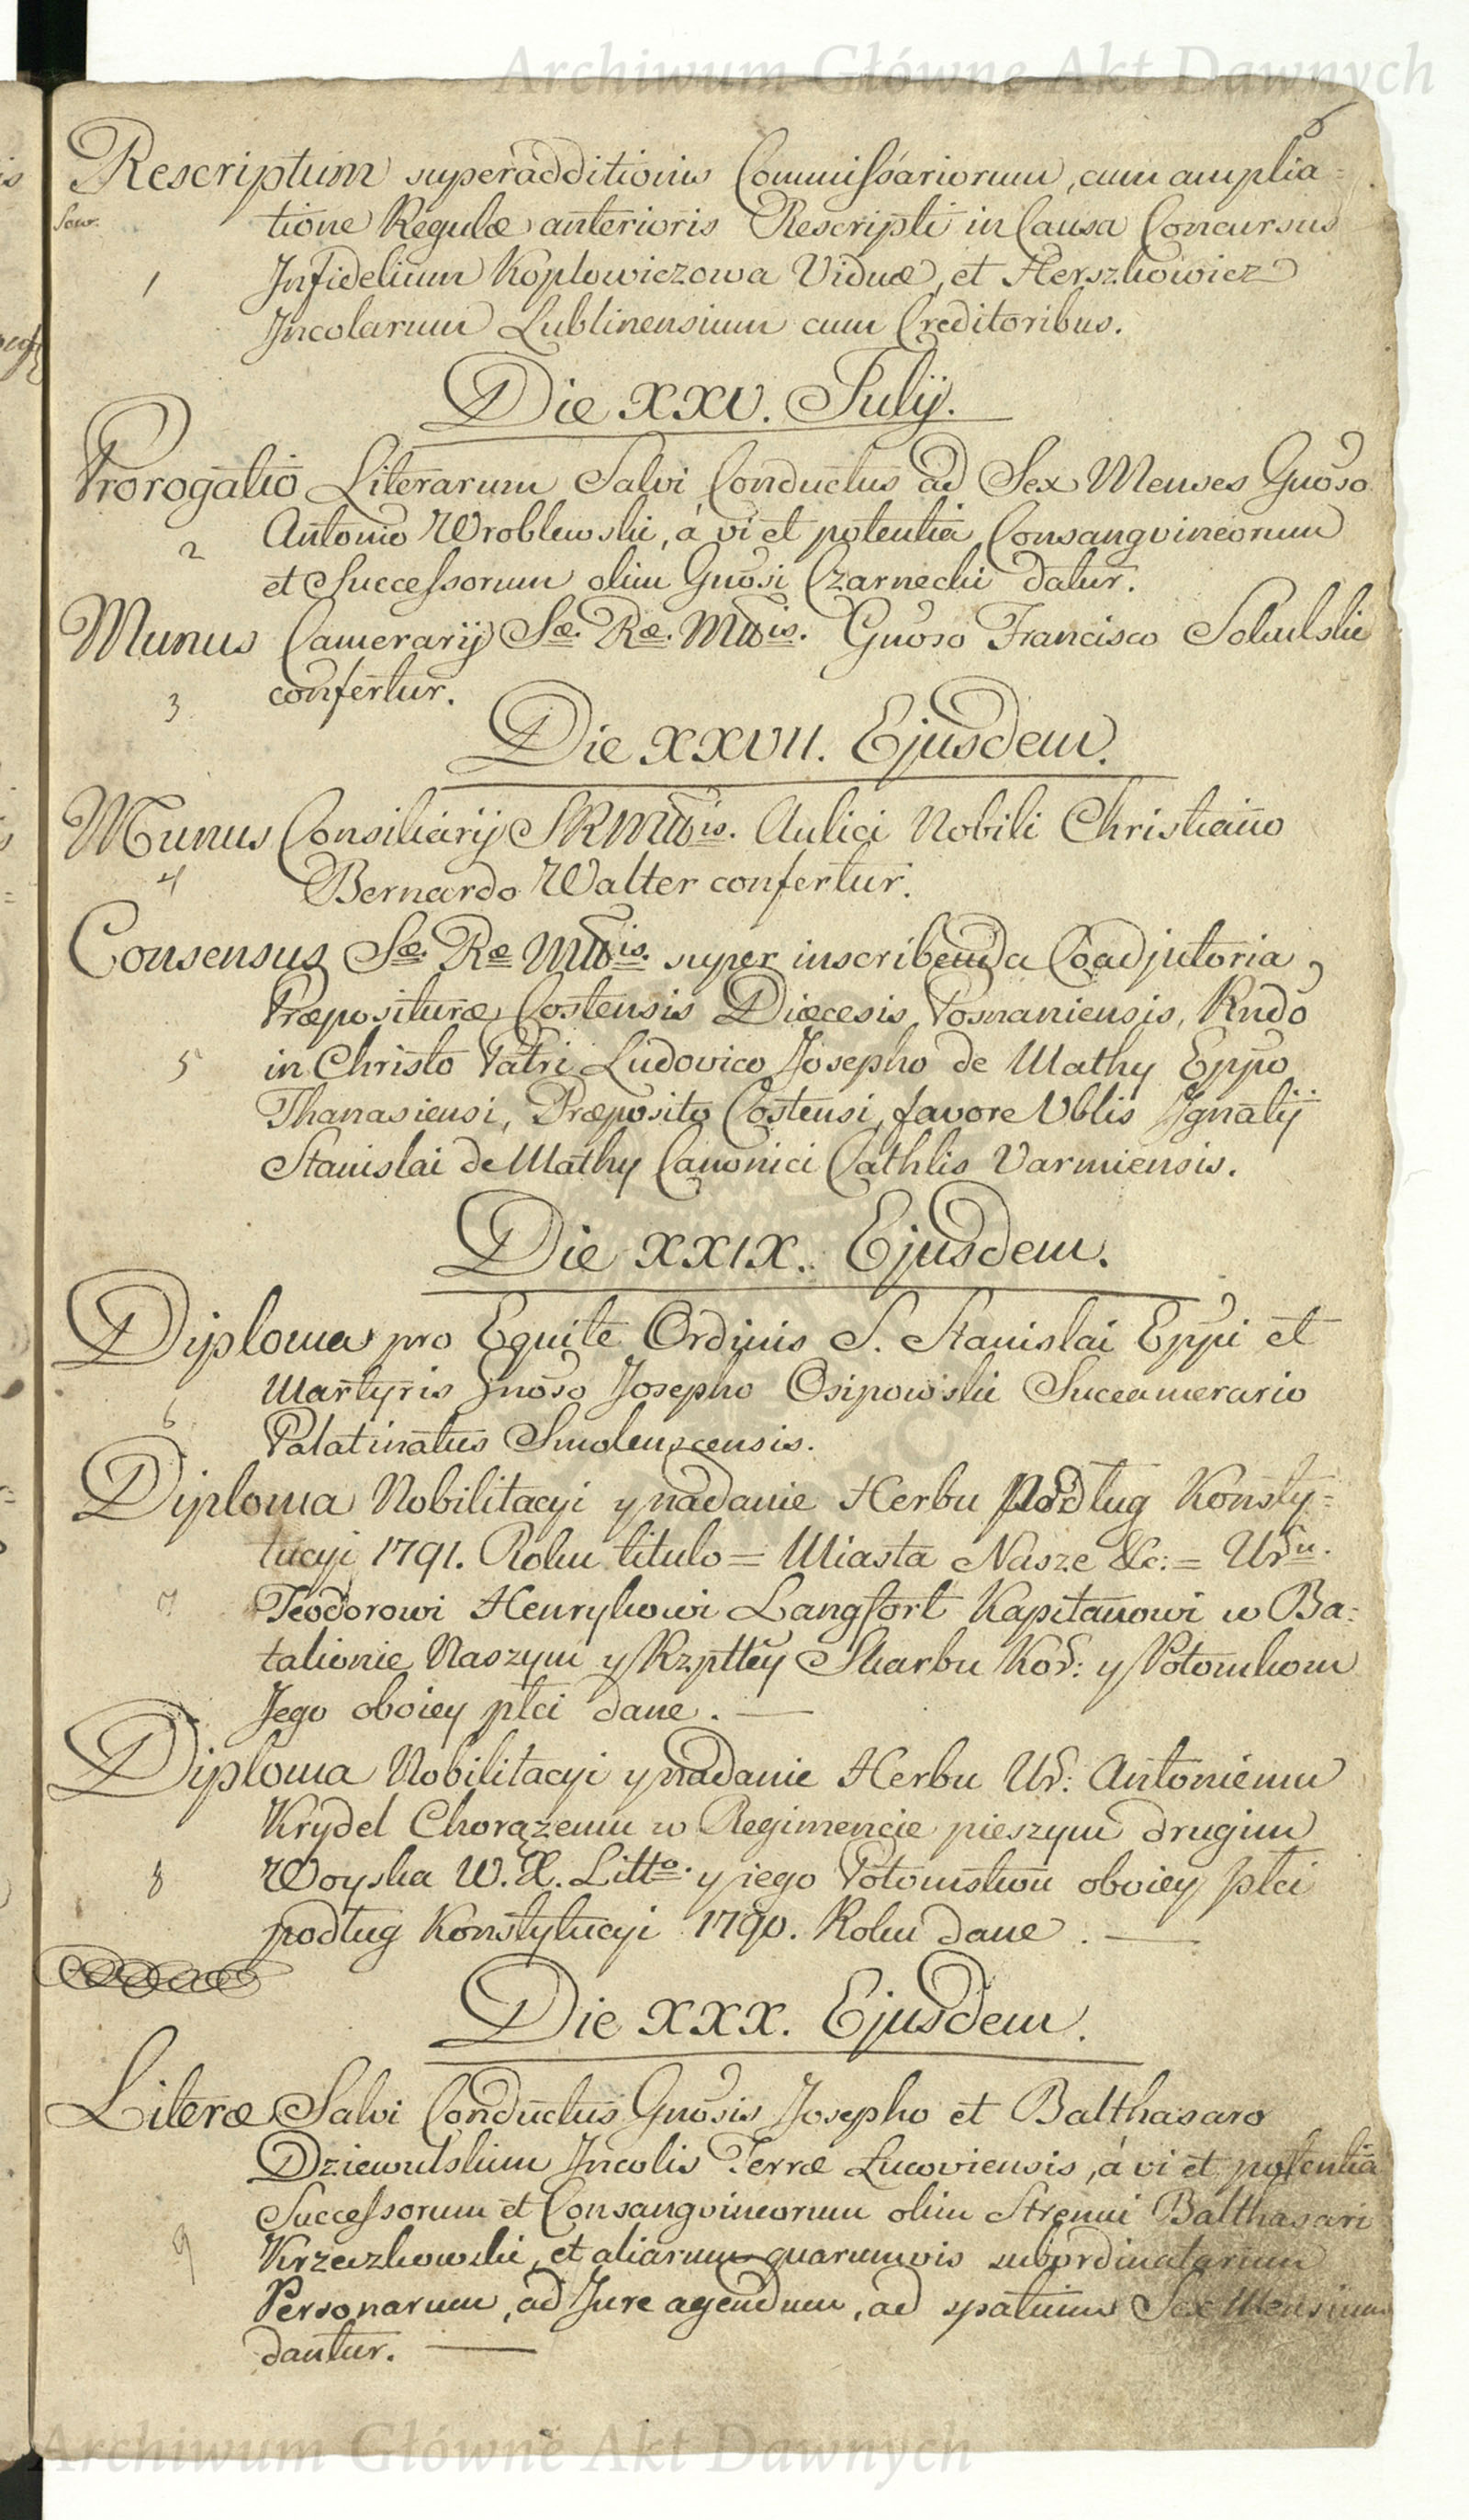 Archiwum Główne Akt Dawnych
6
Rescriptum superadditionis Commissariorum, cum amplia=
tione Regulæ anterioris Rescripti in Causa Concursus
1 Infidelium Koplowiczowa Viduæ, et Herszkowicz
Incolarum Lublinensium cum Creditoribus.
Die XXV. Julij.
Prorogatio Literarum Salvi Conductus ad Sex Menses Gnoso
Antonio Wroblewski, á vi et potentia Consangvineorum
2 et Successorum olim Gnosi Czarnecki datur.
Munus Camerarij Sæ. Ræ. Mttis. Gnoso Francisco Sokulskie
3 confertur.
Die XXVII. Ejusdem.
Munus Consiliarij SRMttis. Aulici Nobili Christiano
4 Bernardo Walter confertur.
Consensus Sæ. Ræ Mttis. super inscribenda Coadjutoria
Præpositturæ Costensis Diæcesis Posnaniensis, Rndo
5 in Christo Patri Ludovico Josepho de Mathy Eppo
Thanasiensi, Præposito Costensi, favore Vblis Ignatij
Stanislai de Mathy Canonici Cathlis Varmiensis.
Die XXIX. Ejusdem.
Diploma pro Equite Ordinis S. Stanislai Eppi et
Martyris Gnoso Josepho Osipowski Succamerario
6 Palatinatus Smolenscensis.
Diploma Nobilitacyi y nadanie Herbu Podług Konsty=
tucyi 1791. Roku titulo = Miasta Nasze &c: = Urn.
7 Teodorowi Henrykowi Langfort Kapitanowi w Ba=
talionie Naszym y Rzpttey Skarbu Kor: y Potomkom
Jego oboiey płci dane.
Diploma Nobilitacyi y nadanie Herbu Ur: Antoniemu
Krydel Chorązemu w Regimencie pieszym drugim
8 Woyska W. X. Litto. y iego Potomstwu oboiey płci
podług Konstytucyi 1790. Roku dane.
Die XXX. Ejusdem.
Literæ Salvi Conductus Gnosis Josepho et Balthasaro
Dziewulskim Incolis Terræ Lucoviensis, á vi et potentia
Successorum et Consangvineorum olim Strenui Balthasari
9 Krzeczkowski, et aliarum quarumvis subordinatarum
Personarum, ad Jure agendum, ad spatium Sex Mensium
dantur.
Archiwum Główne Akt Dawnych